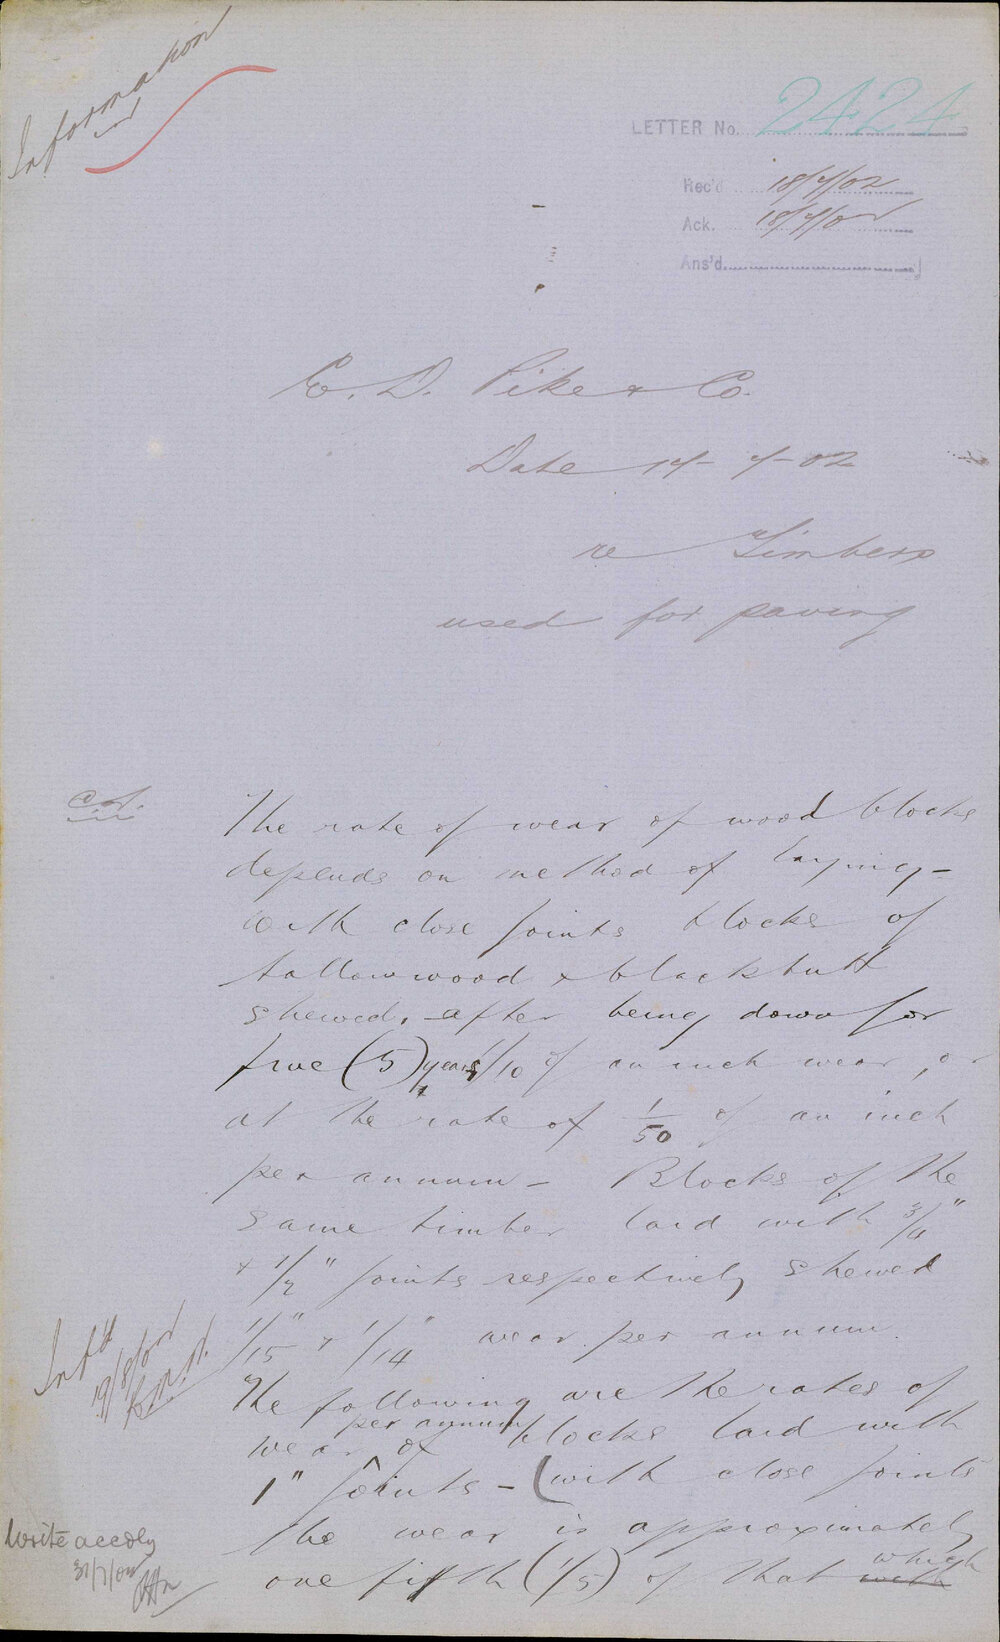 Information
LETTER No. 2424
Rec'd 18/7/02
Ack. 18/7/02
Ans'd
E. D. Pike & Co.
Date 14-7-02
re Timbers
used for paving
The rate of wear of wood blocks
depends on method of laying -
with close joints blocks of
tallowwood & blackbutt
shewed, after being down for
five (5) years 1/10 of an inch wear, or
at the rate of 1/50 of an inch
per annum - Blocks of the
same timber laid with 3/4"
& 1/2" joints respectively shewed
1/15" & 1/14" wear per annum.
The following are the rates of
wear per annum of blocks laid with
1" joints - (with close joints
the wear is approximately
one fifth (1/5) of that with which
Inf'd
19/8/02
Write accdly
31/7/02